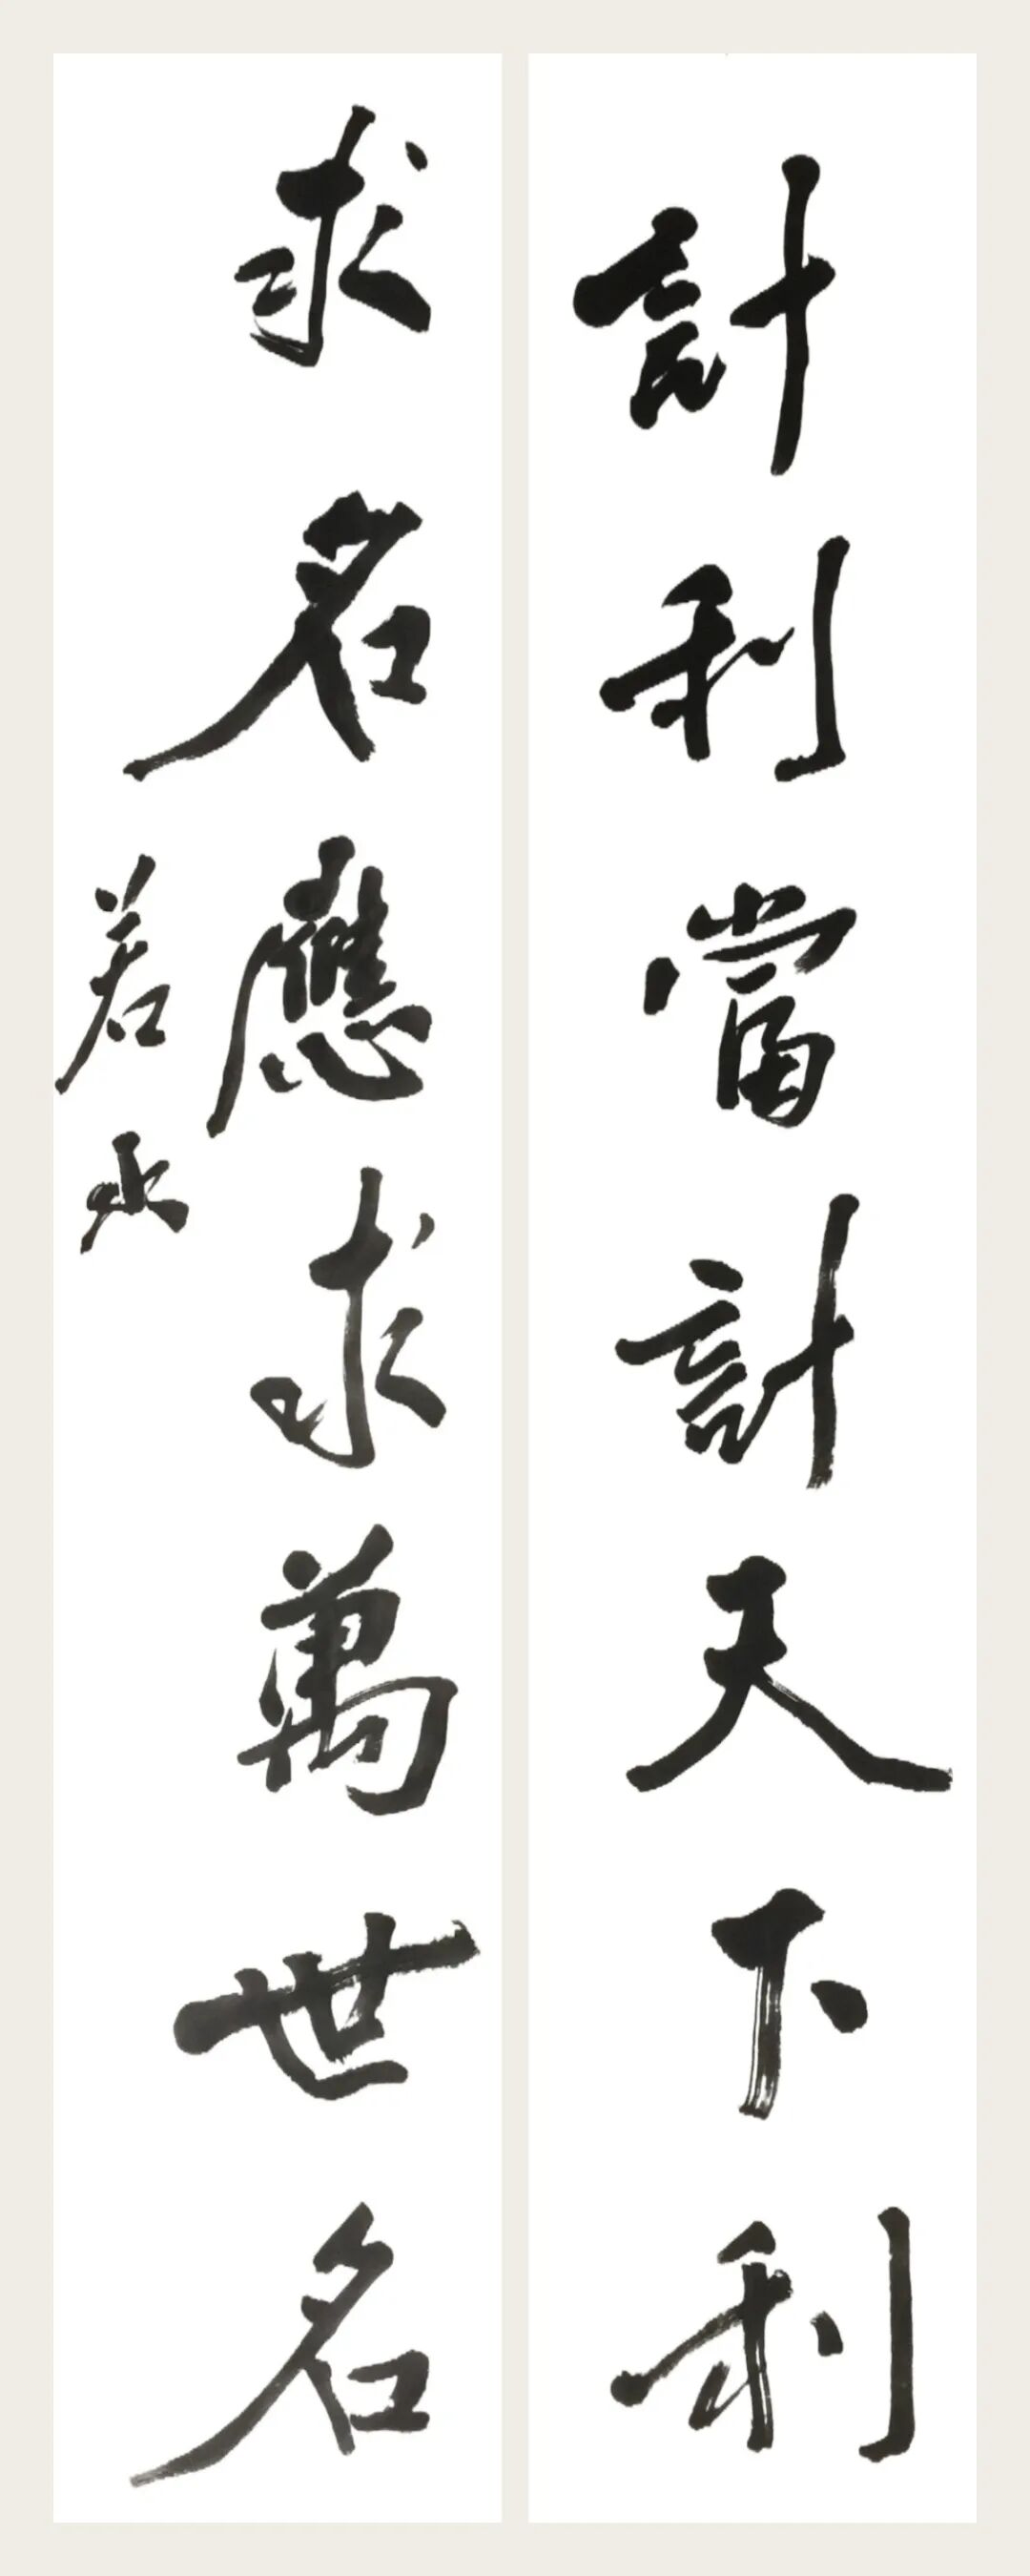 計利當計天下利
求名應求萬世名
若水